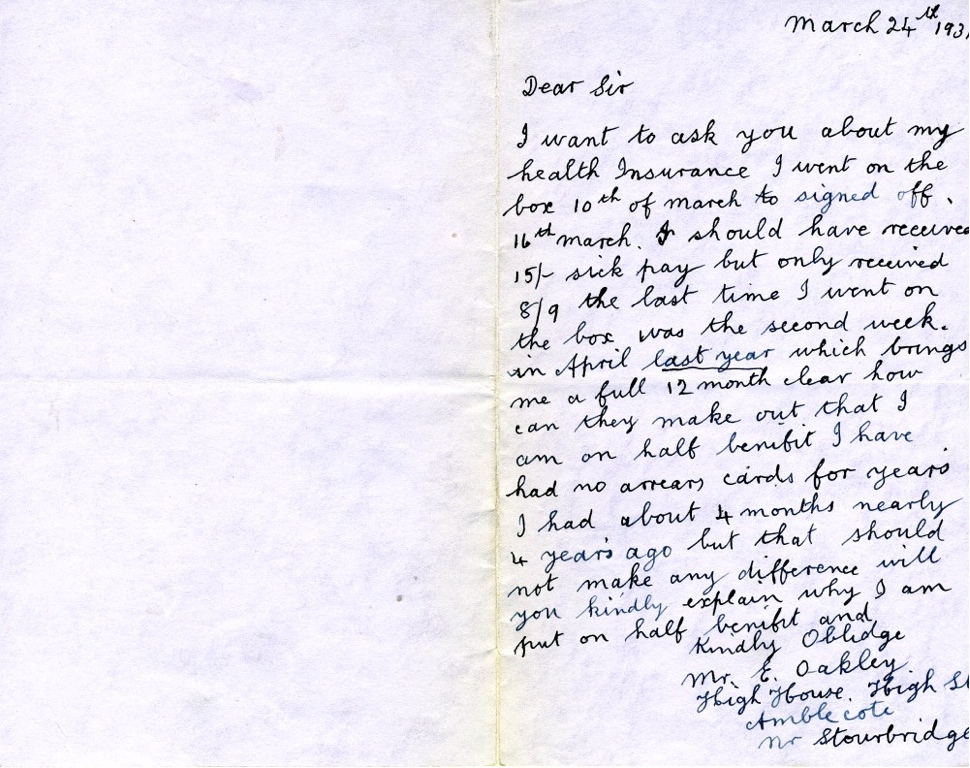 March 24th 193
Dear Sir
I want to ask you about my
health Insurance I went on the
box 10th of march to signed off.
16th march. I should have received
15/- sick pay but only received
8/9 the last time I went on
the box was the second week.
in April last year which brings
me a full 12 month clear how
can they make out that I
am on half benifit I have
had no arrears cards for years
I had about 4 months nearly
4 years ago but that should
not make any difference will
you kindly explain why I am
put on half benifit and
Kindly Oblidge
Mr. E. Oakley.
High House. High St
Amblecote
Nr Stourbridge